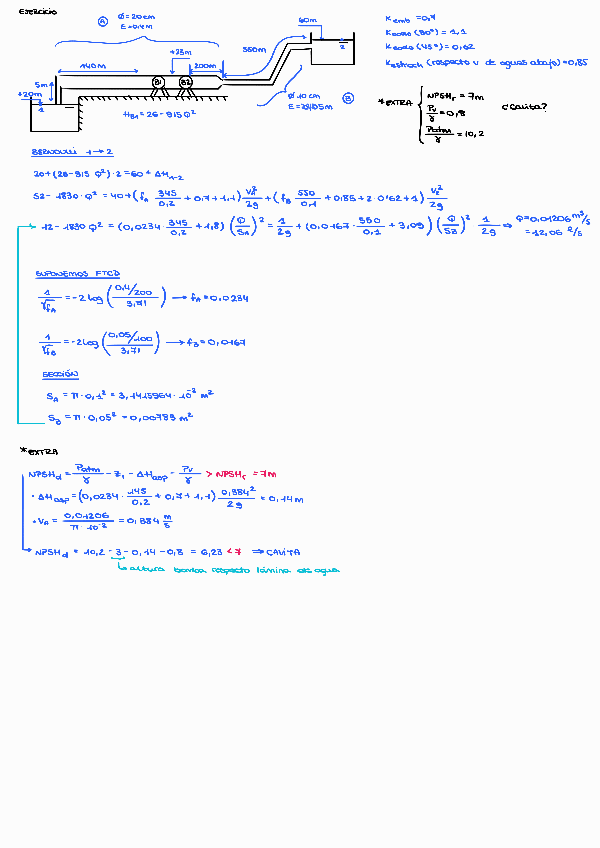 EJERCICIO
Ⓐ Ø=20cm
60m
K emb = 0,7
K codo (90º) = 1,1
2
K codo (45º) = 0,62
+23m
550m
140m
200m
K estrech (respecto v de aguas abajo) = 0,85
5m
B1
B2
+20m
1
Ø 10cm
Ⓑ
H_B1 = 26 - 915 Q²
*EXTRA
NPSHr = 7m
Pv/γ = 0,8
Patm/γ = 10,2
¿Cavita?
BERNOULLI 1→2
20+(26-915 Q²)·2 = 60 + ΔH1-2
52 - 1830·Q² = 40 + (fA 345/0,2 + 0,7 + 1,1) VA²/2g + (fB 550/0,1 + 0,85 + 2·0,62 + 1) VB²/2g
12 - 1830 Q² = (0,0234 · 345/0,2 + 1,8) (Q/SA)² = 1/2g + (0,0167 · 550/0,1 + 3,09) (Q/SB)² 1/2g ⇒ Q = 0,01206 m³/s
= 12,06 l/s
SUPONEMOS FTCD
1/√fA = -2 log ( 0,4/200 / 3,71 ) → fA = 0,0234
1/√fB = -2 log ( 0,05/100 / 3,71 ) → fB = 0,0167
SECCIÓN
SA = π · 0,1² = 3,1415964 · 10⁻² m²
SB = π · 0,05² = 0,00785 m²
*EXTRA
NPSHd = Patm/γ - Z1 - ΔHasp - Pv/γ > NPSHr = 7m
· ΔHasp = (0,0234 · 145/0,2 + 0,7 + 1,1) 0,384²/2g = 0,14m
· VA = 0,01206 / π · 10⁻² = 0,384 m/s
NPSHd = 10,2 - 3 - 0,14 - 0,8 = 6,23 < 7 ⇒ CAVITA
altura bomba respecto lámina de agua